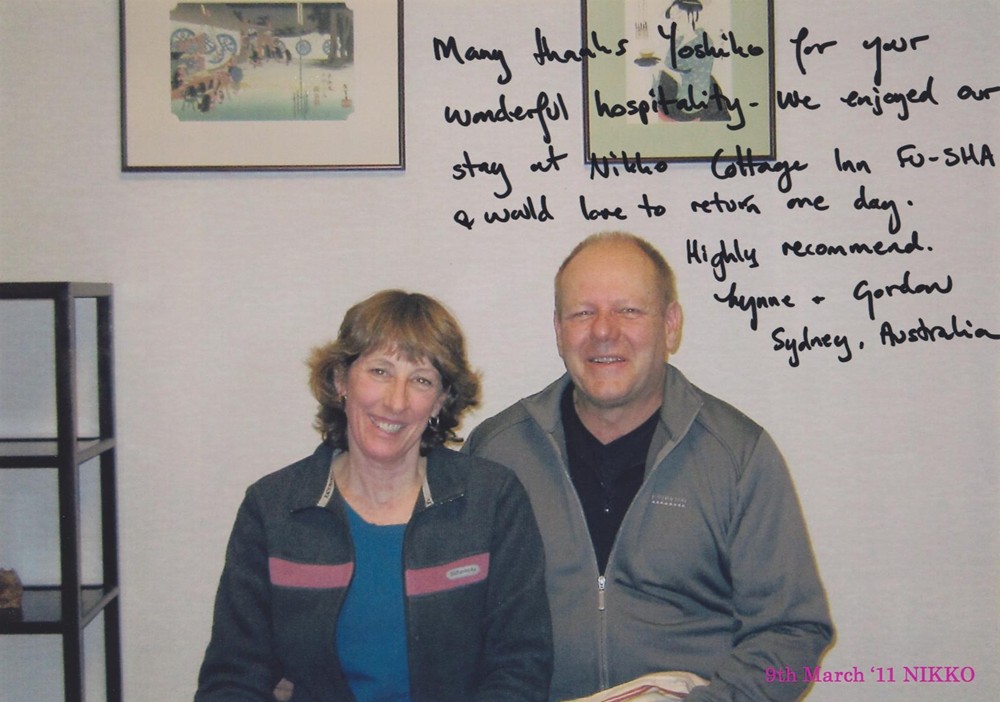 Many thanks Yoshiko for your
wonderful hospitality - We enjoyed our
stay at Nikko Cottage Inn FU-SHA
& would love to return one day.
Highly recommend.
Lynne + Gordon
Sydney, Australia
9th March '11 NIKKO